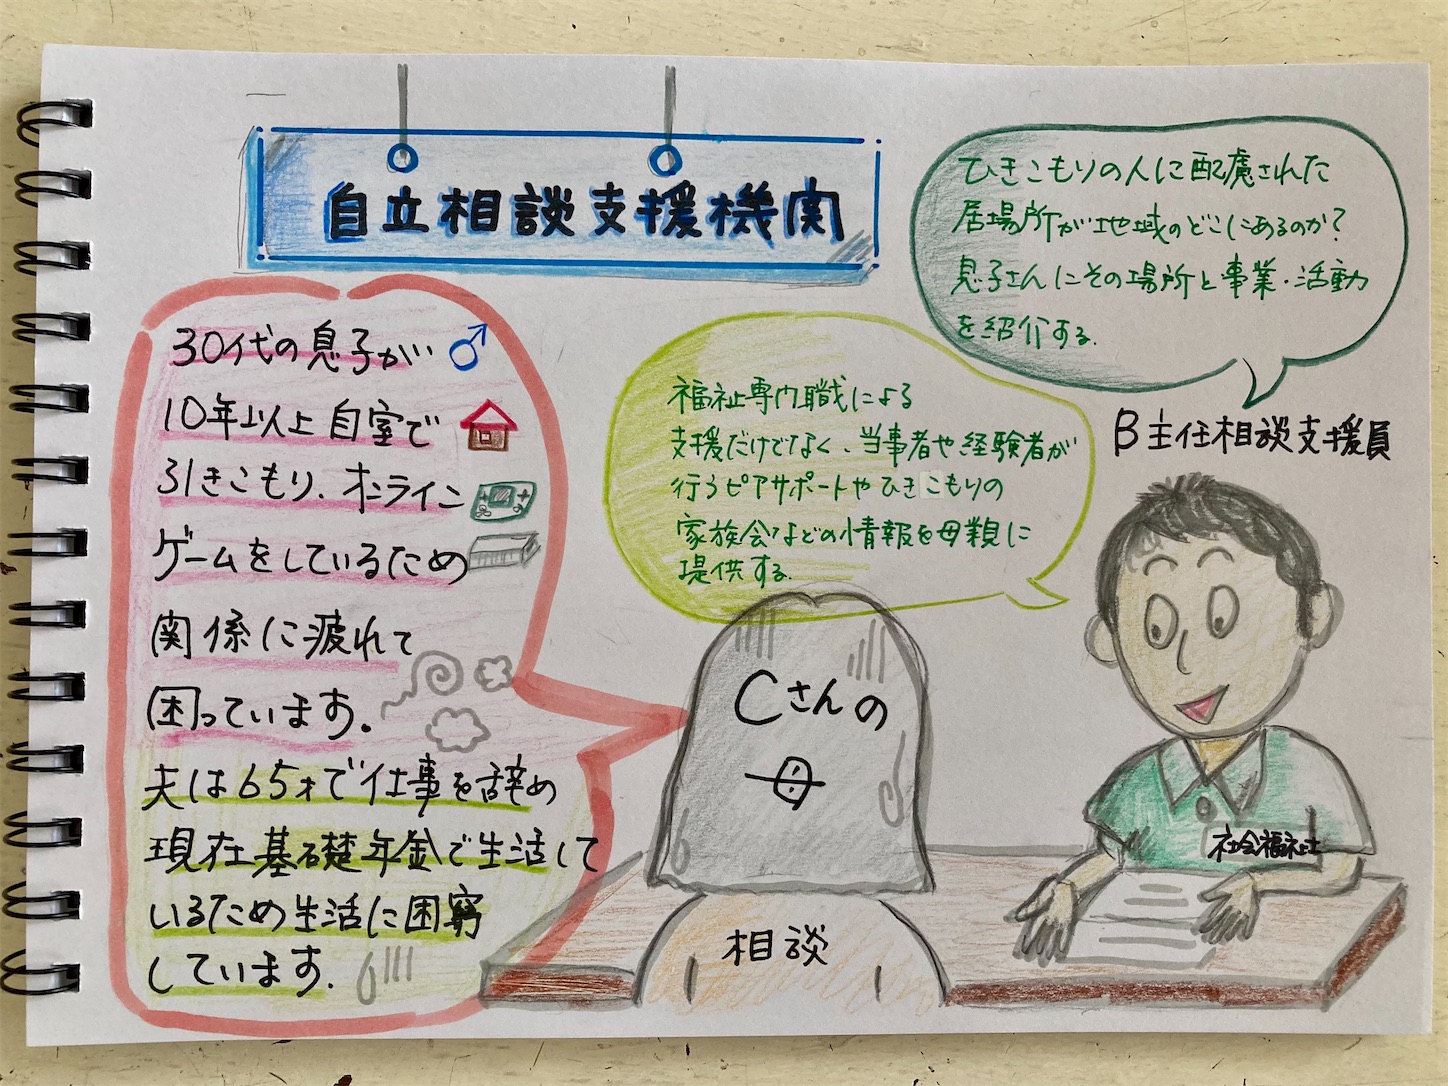 自立相談支援機関
30代の息子が
10年以上自室で
引きこもり、オンライン
ゲームをしているため
関係に疲れて
困っています。
夫は65才で仕事を辞め
現在基礎年金で生活して
いるため生活に困窮
しています。
福祉専門職による
支援だけでなく、当事者や経験者が
行うピアサポートやひきこもりの
家族会などの情報を母親に
提供する。
ひきこもりの人に配慮された
居場所が地域のどこにあるのか?
息子さんにその場所と事業・活動
を紹介する。
B主任相談支援員
Cさんの
母
相談
社会福祉士